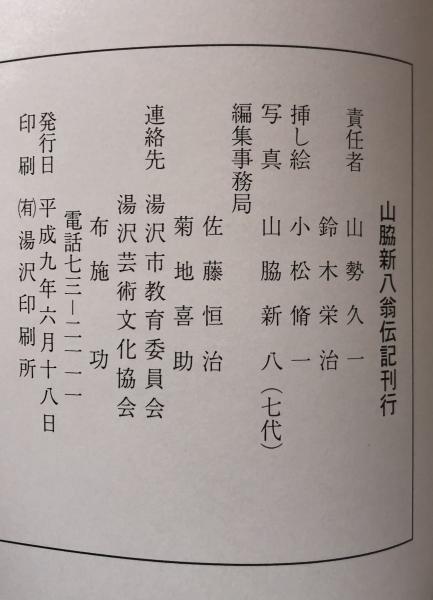 山脇新八翁伝記刊行
責任者 山勢久一
鈴木栄治
挿し絵 小松脩一
写真 山脇新八（七代）
編集事務局
佐藤恒治
菊地喜助
連絡先 湯沢市教育委員会
湯沢芸術文化協会
布施功
電話七三－二一一一
発行日 平成九年六月十八日
印刷 ㈲湯沢印刷所